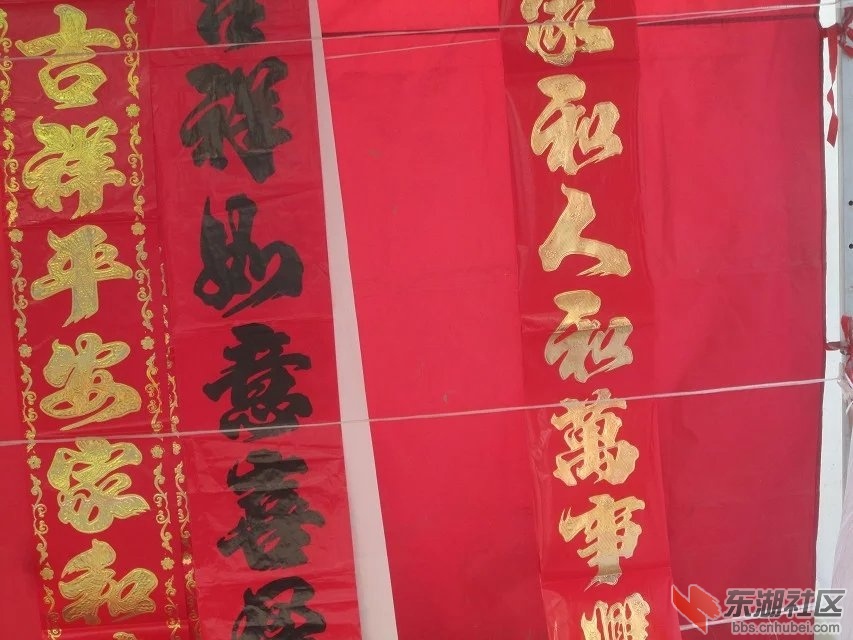 吉祥平安家和
祥如意喜
家和人和萬事興
东湖社区
bbs.cnhubei.com